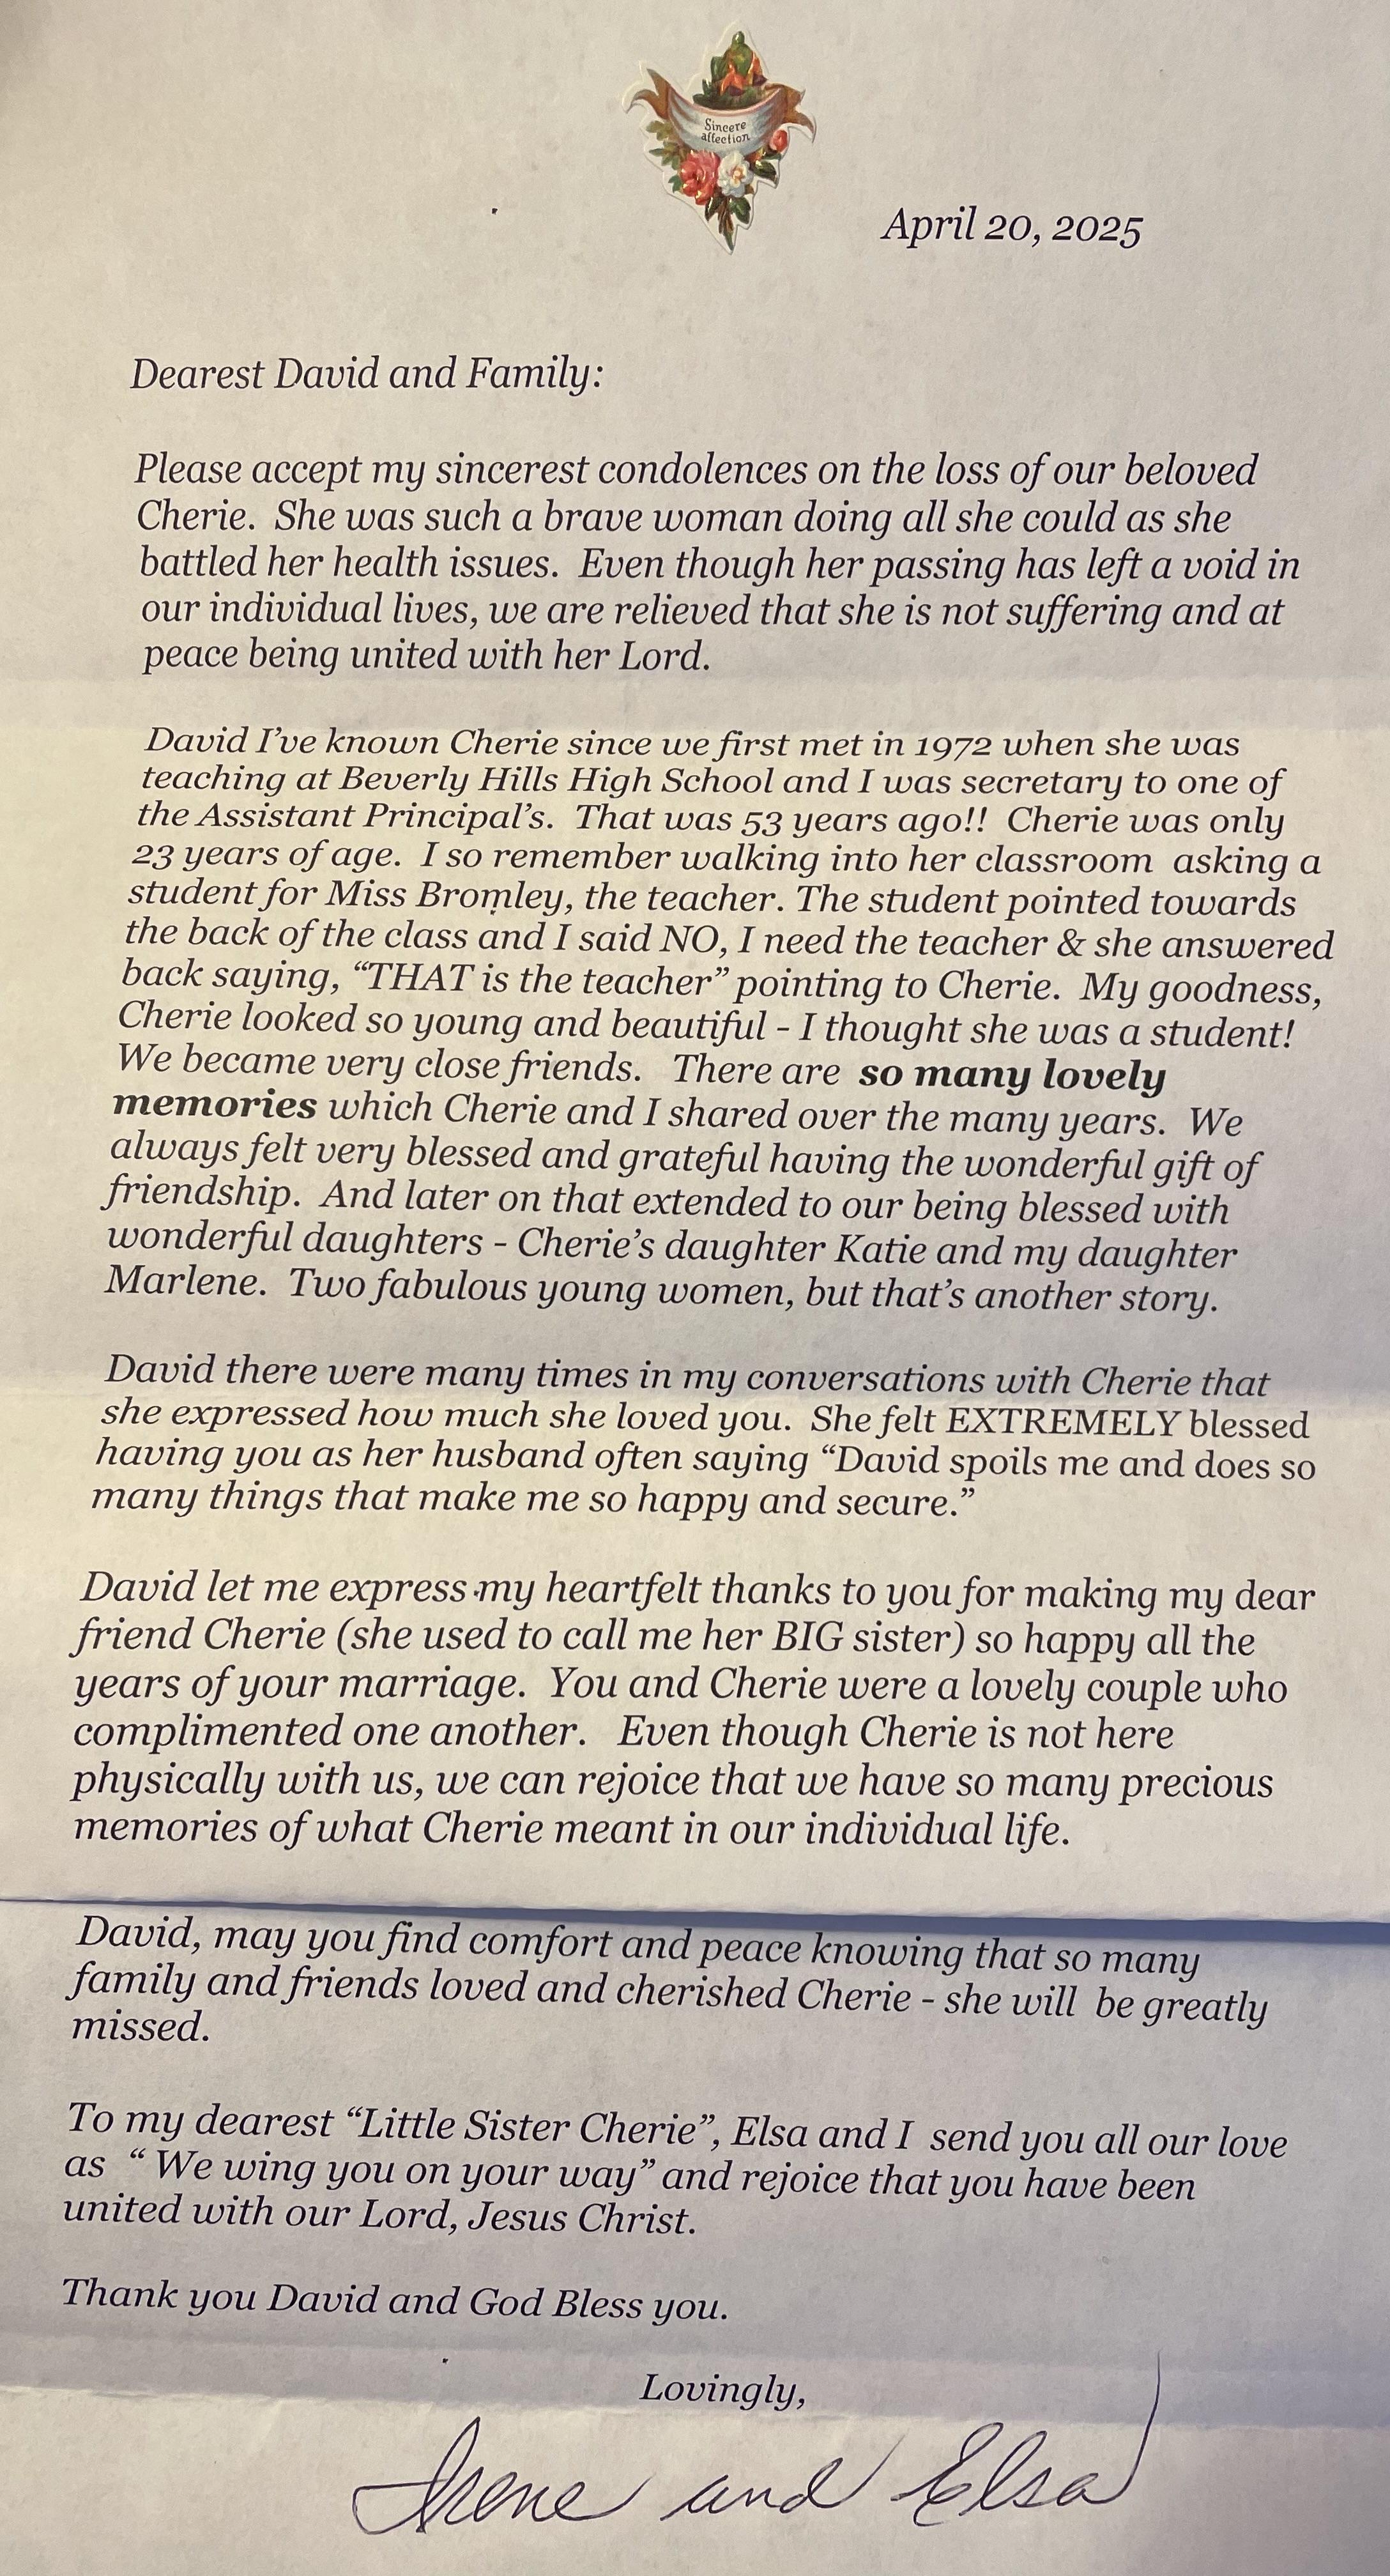 Sincere
affection
April 20, 2025
Dearest David and Family:
Please accept my sincerest condolences on the loss of our beloved
Cherie.  She was such a brave woman doing all she could as she
battled her health issues.  Even though her passing has left a void in
our individual lives, we are relieved that she is not suffering and at
peace being united with her Lord.
David I’ve known Cherie since we first met in 1972 when she was
teaching at Beverly Hills High School and I was secretary to one of
the Assistant Principal’s.  That was 53 years ago!!  Cherie was only
23 years of age.  I so remember walking into her classroom  asking a
student for Miss Bromley, the teacher. The student pointed towards
the back of the class and I said NO, I need the teacher & she answered
back saying, “THAT is the teacher” pointing to Cherie.  My goodness,
Cherie looked so young and beautiful - I thought she was a student!
We became very close friends.   There are  so many lovely
memories which Cherie and I shared over the many years.  We
always felt very blessed and grateful having the wonderful gift of
friendship.  And later on that extended to our being blessed with
wonderful daughters - Cherie’s daughter Katie and my daughter
Marlene.  Two fabulous young women, but that’s another story.
David there were many times in my conversations with Cherie that
she expressed how much she loved you.  She felt EXTREMELY blessed
having you as her husband often saying “David spoils me and does so
many things that make me so happy and secure.”
David let me express my heartfelt thanks to you for making my dear
friend Cherie (she used to call me her BIG sister) so happy all the
years of your marriage.  You and Cherie were a lovely couple who
complimented one another.   Even though Cherie is not here
physically with us, we can rejoice that we have so many precious
memories of what Cherie meant in our individual life.
David, may you find comfort and peace knowing that so many
family and friends loved and cherished Cherie - she will  be greatly
missed.
To my dearest “Little Sister Cherie”, Elsa and I  send you all our love
as  “ We wing you on your way” and rejoice that you have been
united with our Lord, Jesus Christ.
Thank you David and God Bless you.
Lovingly,
Irene and Elsa